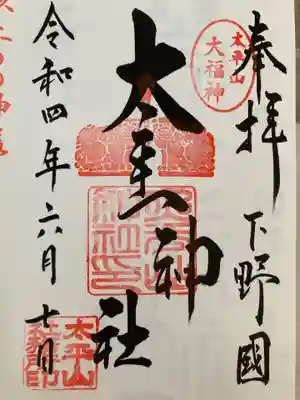 奉拝
下野國
太平山
大福神
太平山神社
令和四年六月七日
太平山